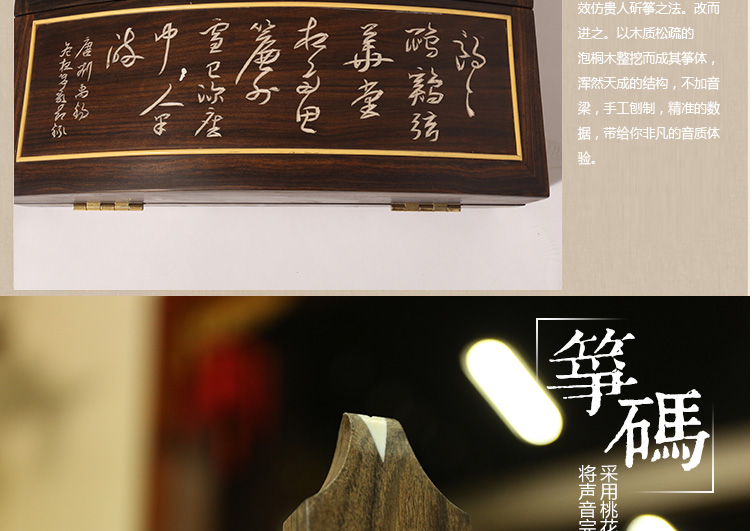 效仿贵人斫筝之法。改而
进之。以木质松疏的
泡桐木整挖而成其筝体，
浑然天成的结构，不加音
梁，手工刨制，精准的数
据，带给你非凡的音质体
验。
朗〻
鵾鷄弦
華堂
夜多思
簾外
雪已深座
中，人半
醉
唐刘禹锡
筝碼
采用桃花
将声音完